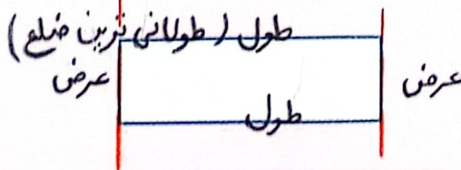 طول (طولانی ترین ضلع)
عرض
عرض
طول